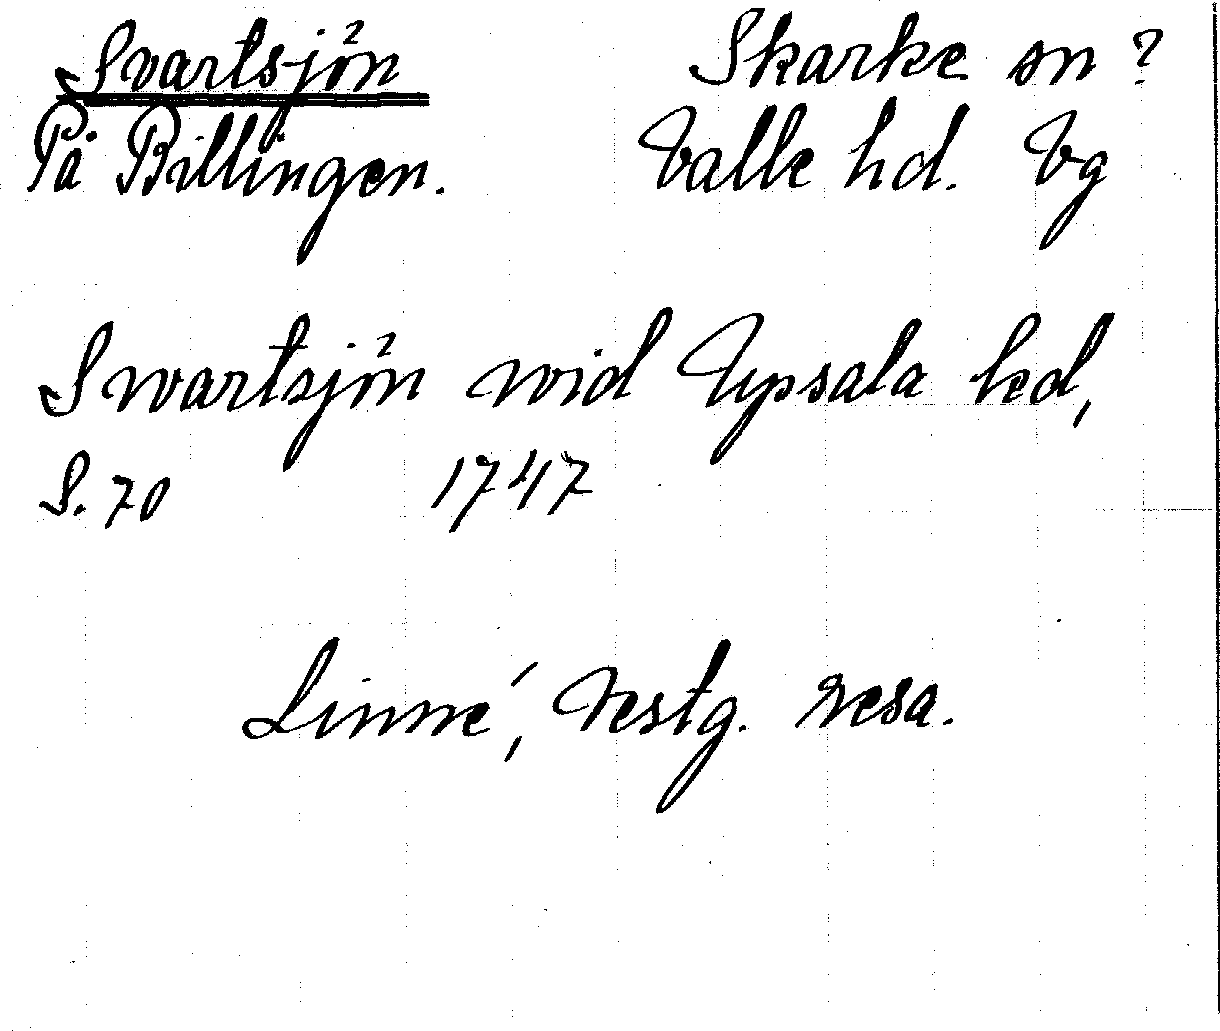 Svartsjön Skarke sn ?
På Billingen. Valle hd. Vg
Swartsjön wid Upsala hed,
S. 70 1747
Linné, Vestg. resa.